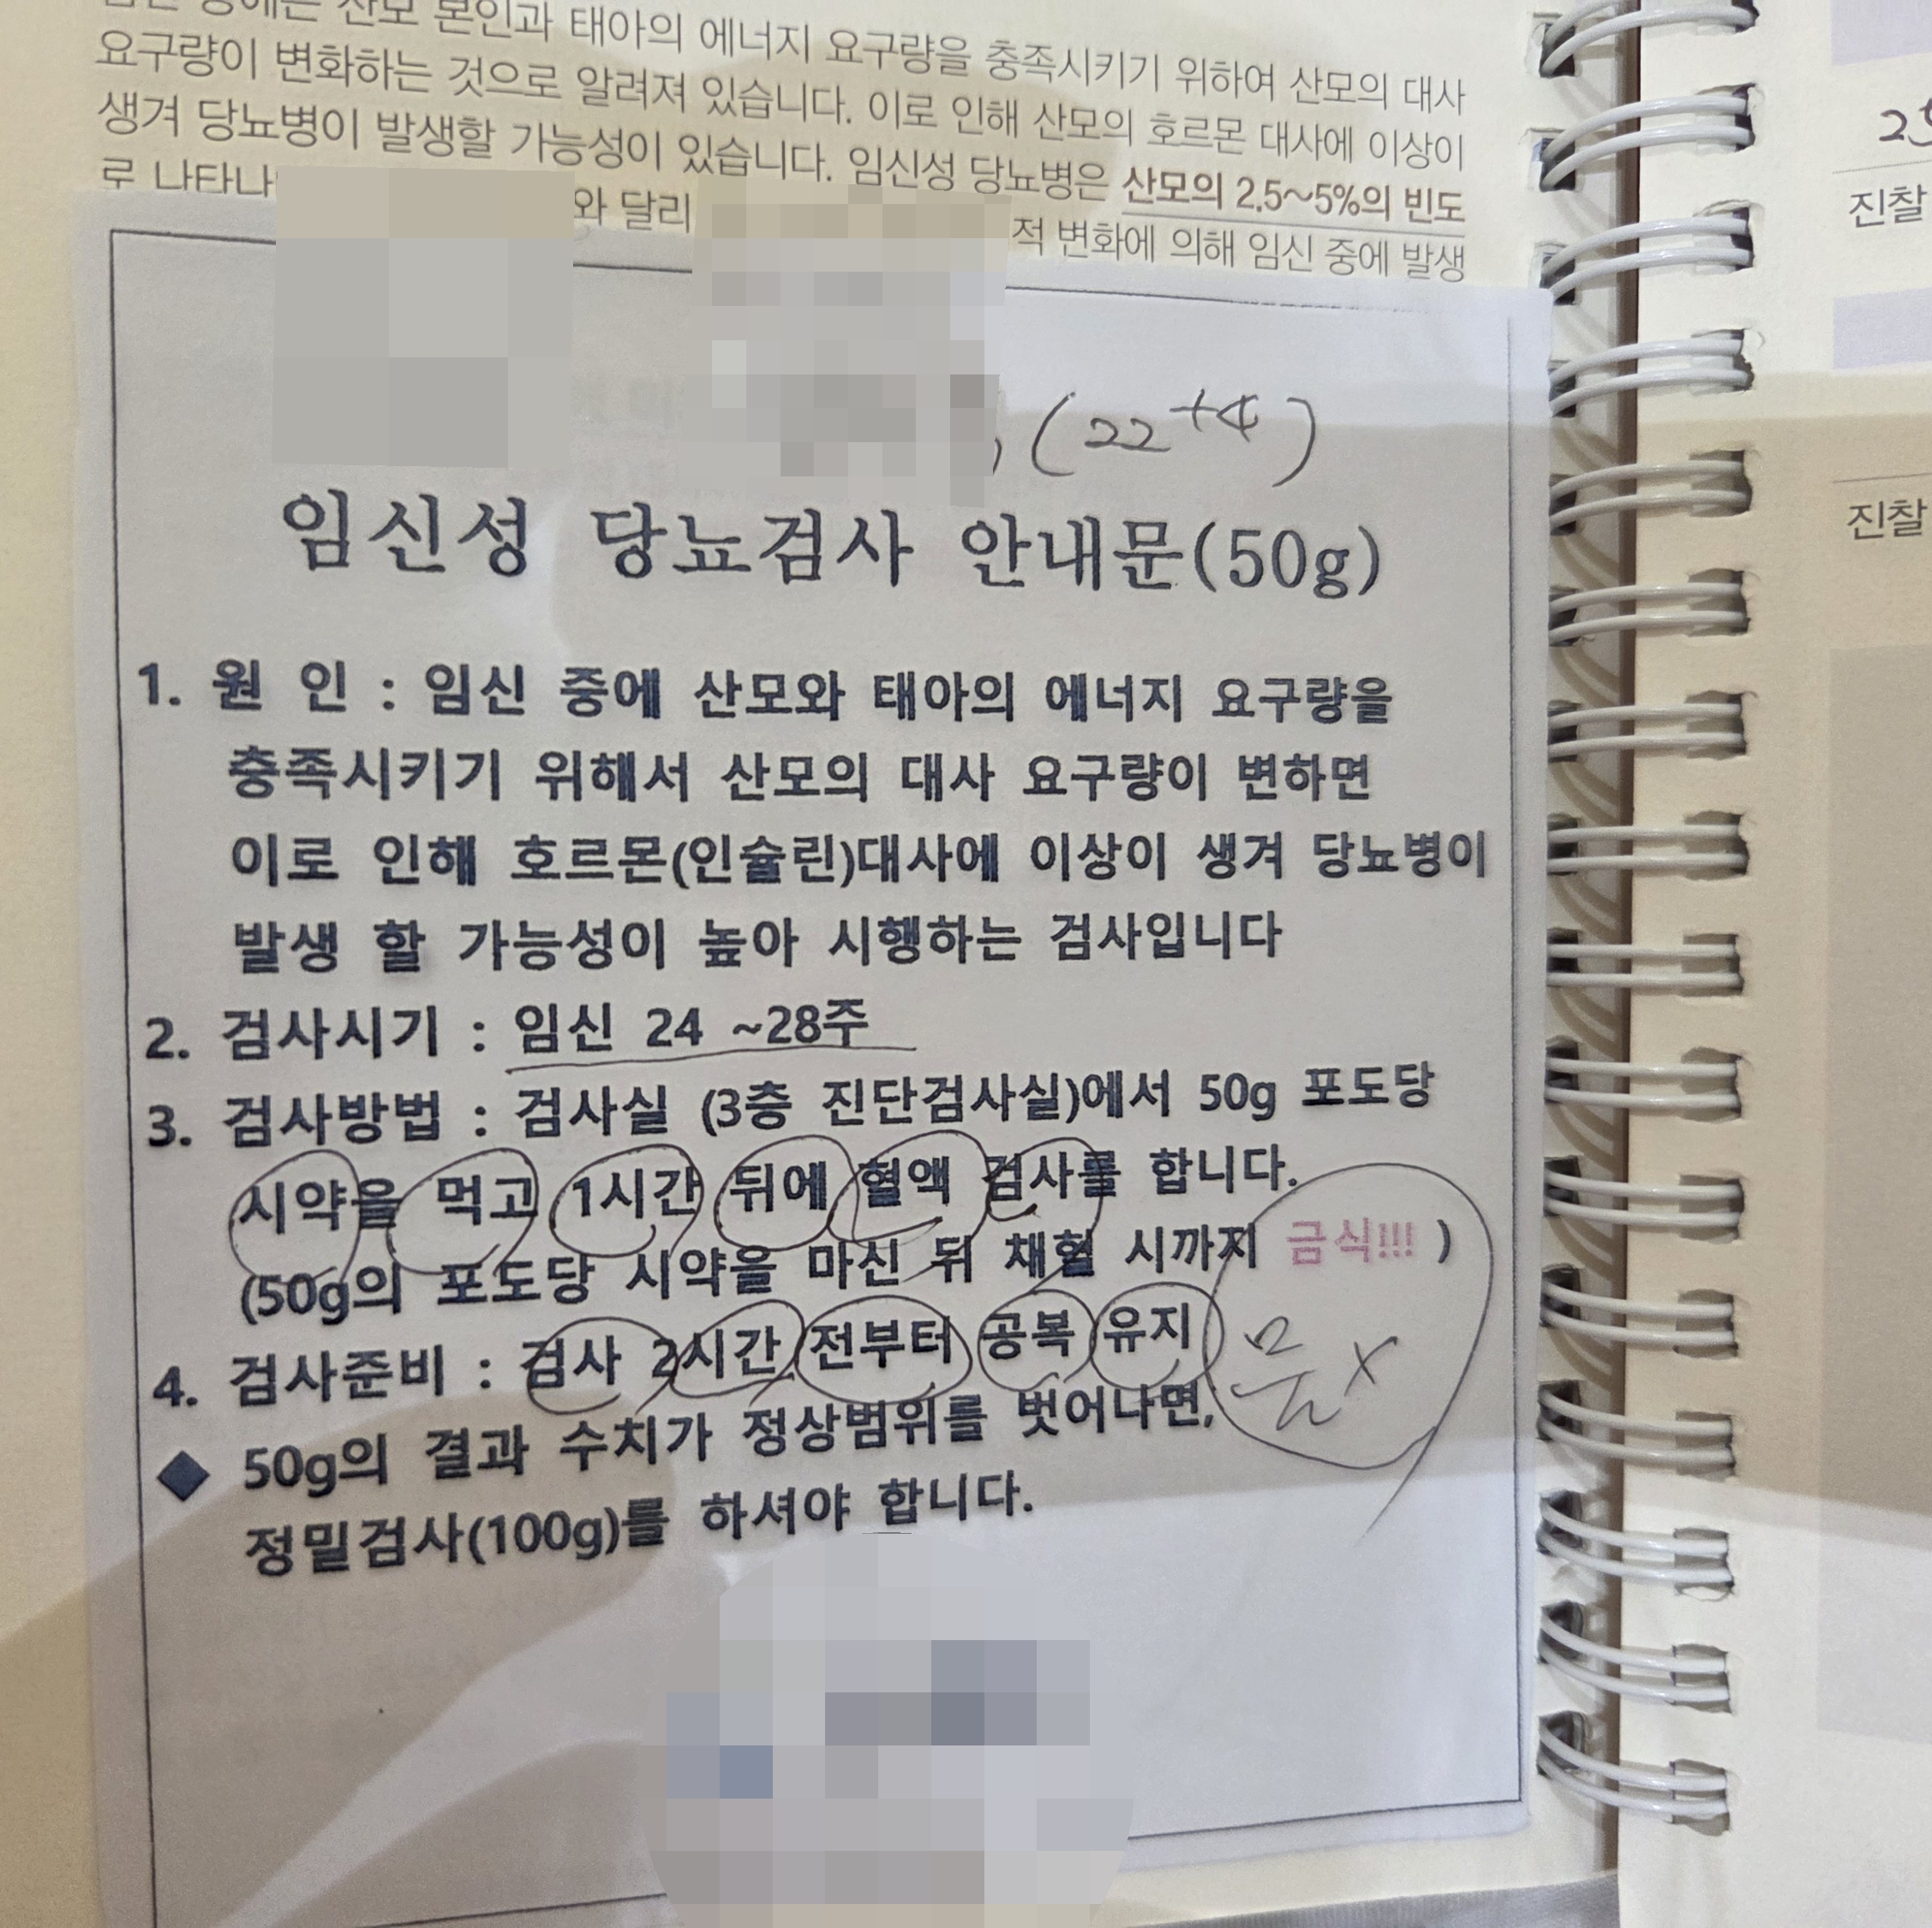 산모 본인과 태아의 에너지 요구량을 충족시키기 위하여 산모의 대사
요구량이 변화하는 것으로 알려져 있습니다. 이로 인해 산모의 호르몬 대사에 이상이
생겨 당뇨병이 발생할 가능성이 있습니다. 임신성 당뇨병은 산모의 2.5~5%의 빈도
로 나타나 와 달리 적 변화에 의해 임신 중에 발생
(22+4)
임신성 당뇨검사 안내문(50g)
1. 원 인 : 임신 중에 산모와 태아의 에너지 요구량을
충족시키기 위해서 산모의 대사 요구량이 변하면
이로 인해 호르몬(인슐린)대사에 이상이 생겨 당뇨병이
발생 할 가능성이 높아 시행하는 검사입니다
2. 검사시기 : 임신 24 ~28주
3. 검사방법 : 검사실 (3층 진단검사실)에서 50g 포도당
시약을 먹고 1시간 뒤에 혈액 검사를 합니다.
(50g의 포도당 시약을 마신 뒤 채혈 시까지 금식!!! )
4. 검사준비 : 검사 2시간 전부터 공복 유지
물 X
◆ 50g의 결과 수치가 정상범위를 벗어나면,
정밀검사(100g)를 하셔야 합니다.
진찰
진찰